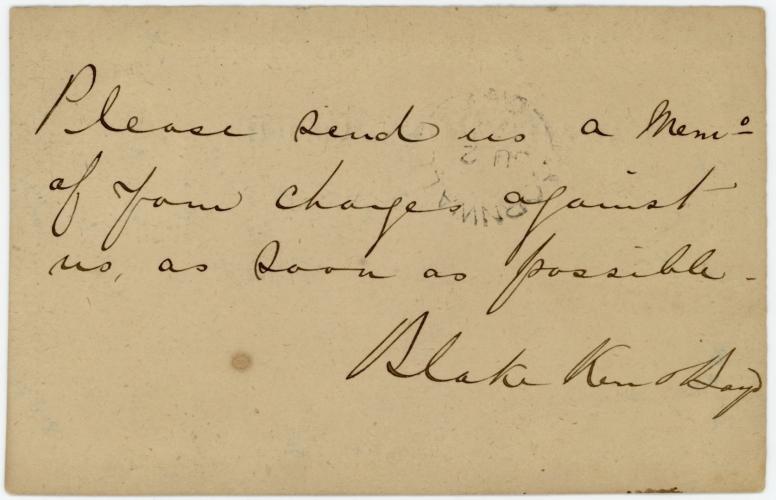 Please send us a Mem.o
of your charges against
us, as soon as possible.
Blake Kerr & Boyd